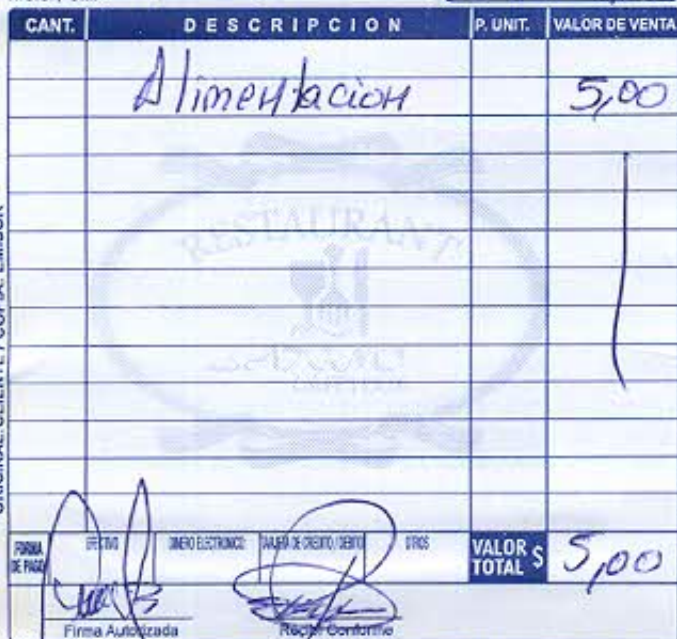 CANT. DESCRIPCION P. UNIT. VALOR DE VENTA
Alimentacion 5,00
RESTAURANT
FORMA DE PAGO EFECTIVO DINERO ELECTRONICO TARJETA DE CREDITO / DEBITO OTROS VALOR TOTAL $ 5,00
Firma Autorizada Recibí Conforme
ORIGINAL: CLIENTE / COPIA: EMISOR